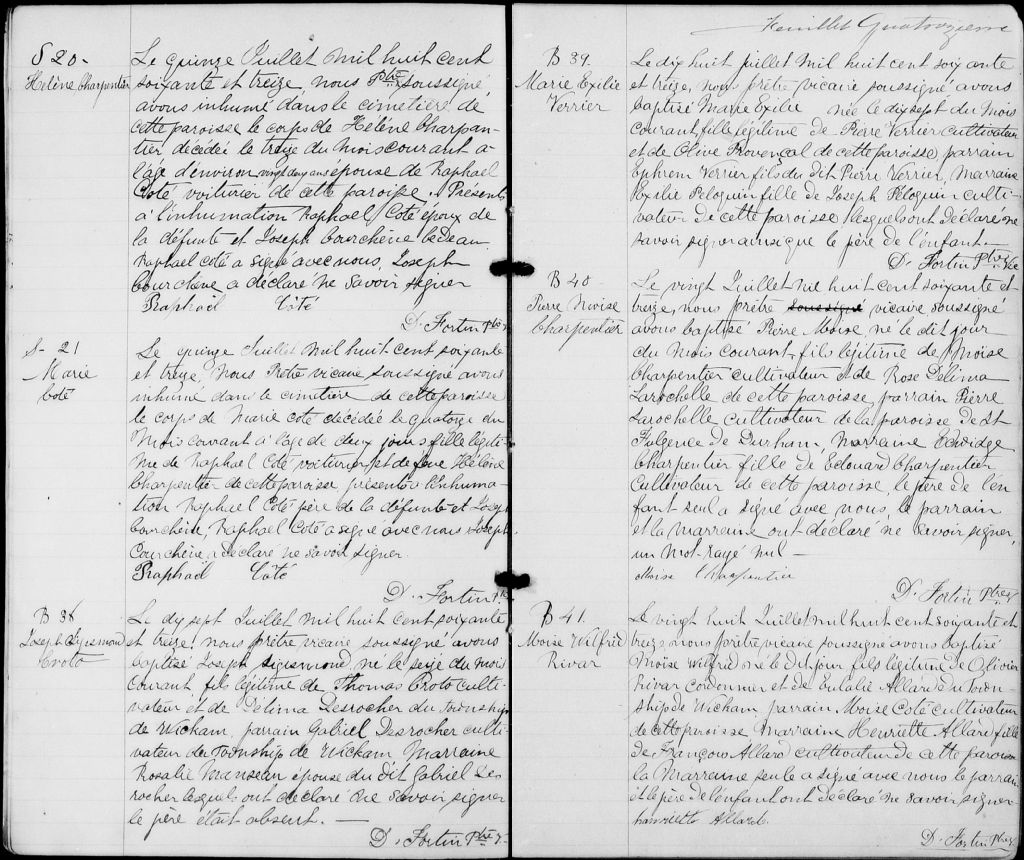 S 20.
Helène Charpentier
Le quinze Juillet mil huit cent
soixante et treize, nous Ptre soussigné
avons inhumé dans le cimetière de
cette paroisse le corps de Hélène Charpan-
tier décédée le treize du mois courant à
l'âge d'environ vingt deux ans épouse de Raphael
Coté voiturier de cette paroisse. Présents
à l'inhumation Raphael Coté époux de
la défunte et Joseph Courchêne bedeau
Raphael coté a signé avec nous, Joseph
Courchêne a déclaré ne savoir signer
Raphaël Côté
D. Fortin Ptre
S- 21
Marie
Coté
Le quinze Juillet mil huit cent soixante
et treize, nous Prêtre vicaire soussigné avons
inhumé dans le cimetière de cette paroisse
le corps de Marie coté décédée le quatorze du
mois courant à l'age de deux jours fille légiti-
me de Raphael Coté voiturier et de feue Hélène
Charpentier de cette paroisse présents à l'inhuma-
tion Raphael Coté père de la défunte et Joseph
Courchêne, Raphael Coté a signé avec nous Joseph
Courchêne a déclaré ne savoir signer.
Raphaël Côté
D. Fortin Ptre
B 38
Joseph Sigismond
Croto
Le dix sept Juillet mil huit cent soixante
et treize nous prêtre vicaire soussigné avons
baptisé Joseph Sigismond né le seize du mois
courant fils légitime de Thomas Croto culti-
vateur et de Délima Desrocher du Township
de Wickam, parrain Gabriel Desrocher culti-
vateur du Township de Wickam Marraine
Rosalie épouse du dit Gabriel Des
rocher lesquels ont déclaré ne savoir signer
le père était absent. —
D. Fortin Ptre
Feuillet Quatorzième
B 39.
Marie Exilie
Verrier
Le dix huit juillet mil huit cent soixante
et treize, nous prêtre vicaire soussigné avons
baptisé Marie Exilie née le dix sept du mois
courant, fille légitime de Pierre Verrier cultivateur
et de Olive Provençal de cette paroisse, parrain
Ephrem Verrier fils du dit Pierre Verrier, Marraine
Exilie Péloquin fille de Joseph Péloquin culti-
vateur de cette paroisse lesquels ont déclaré ne
savoir signer ainsi que le père de l'enfant.
D. Fortin Ptre Vic
B 40
Pierre Moise
Charpentier
Le vingt Juillet mil huit cent soixante et
treize, nous prêtre soussigné vicaire soussigné
avons baptisé Pierre Moise né le dit jour
du mois courant, fils légitime de Moïse
Charpentier cultivateur et de Rose Délima
Larochelle de cette paroisse, parrain Pierre
Larochelle cultivateur de la paroisse de St
Fulgence de Durham, Marraine Edwidge
Charpentier fille de Edouard Charpentier
cultivateur de cette paroisse, le père de l'en
fant seul a signé avec nous, le parrain
et la marraine ont déclaré ne savoir signer,
un mot rayé nul —
Moise Charpentier
D. Fortin Ptre
B 41.
Moise Wilfrid
Rivar
Le vingt huit Juillet mil huit cent soixante et
treize, nous prêtre vicaire soussigné avons baptisé
Moïse Wilfrid né le dit jour fils légitime de Olivier
Rivar Cordonnier et de Eulalie Allard du Town-
ship de Wickam, parrain Moise Coté cultivateur
de cette paroisse Marraine Henriette Allard fille
de François Allard cultivateur de cette paroisse
la Marraine seule a signé avec nous le parrain
et le père de l'enfant ont déclaré ne savoir signer
henriette Allard.
D. Fortin Ptre